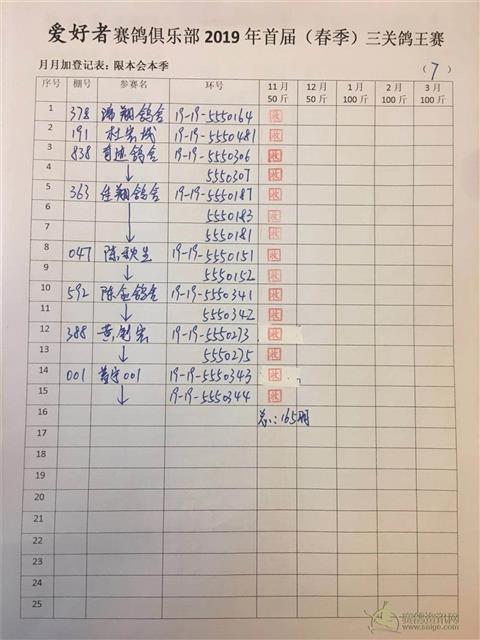 爱好者赛鸽俱乐部2019年首届（春季）三关鸽王赛
月月加登记表：限本会本季 （7）
序号 棚号 参赛名 环号 11月50斤 12月50斤 1月100斤 2月100斤 3月100斤
1 378 翔鸽舍 19-19-5550164
2 191 杜 19-19-5550481
3 838 奇迹鸽舍 19-19-5550306
4 ↓ 5550307
5 363 佳翔鸽舍 19-19-5550187
6 5550183
7 ↓ 5550181
8 047 陈秋生 19-19-5550151
9 ↓ 5550152
10 592 陈金鸽舍 19-19-5550341
11 ↓ 5550342
12 388 黄剑 19-19-5550273
13 ↓ 5550275
14 001 001 19-19-5550343
15 ↓ 19-19-5550344
16 165羽
17
18
19
20
21
22
23
24
25
赛鸽资讯网
www.saige.com